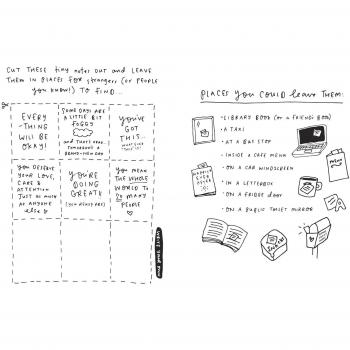 CUT THESE tiny notes OUT and LEAVE
THEM IN PLACES FOR strangers (OR PEOPLE
YOU KNOW!) TO FIND...
EVERY
-THING
WILL BE
OKAY!
SOME DAYS ARE
A LITTLE BIT
FOGGY
and THAT'S OKAY.
TOMORROW'S A
BRAND-NEW DAY
YOU'VE
GOT
THIS...
WHATEVER
"THIS" IS!
YOU DESERVE
YOUR LOVE,
CARE &
ATTENTION
JUST AS MUCH
AS ANYONE
else
YOU'RE
DOING
GREAT!
(YOU REALLY ARE)
YOU MEAN
THE WHOLE
WORLD TO
SO MANY
PEOPLE
WRITE YOUR OWN
PLACES YOU COULD LEAVE THEM:
• LIBRARY BOOK (or a FRIEND'S BOOK)
• A TAXI
• AT A BUS STOP
• INSIDE A CAFE MENU
• ON A CAR WINDSCREEN
• IN A LETTERBOX
• ON A FRIDGE DOOR
• ON A PUBLIC TOILET MIRROR